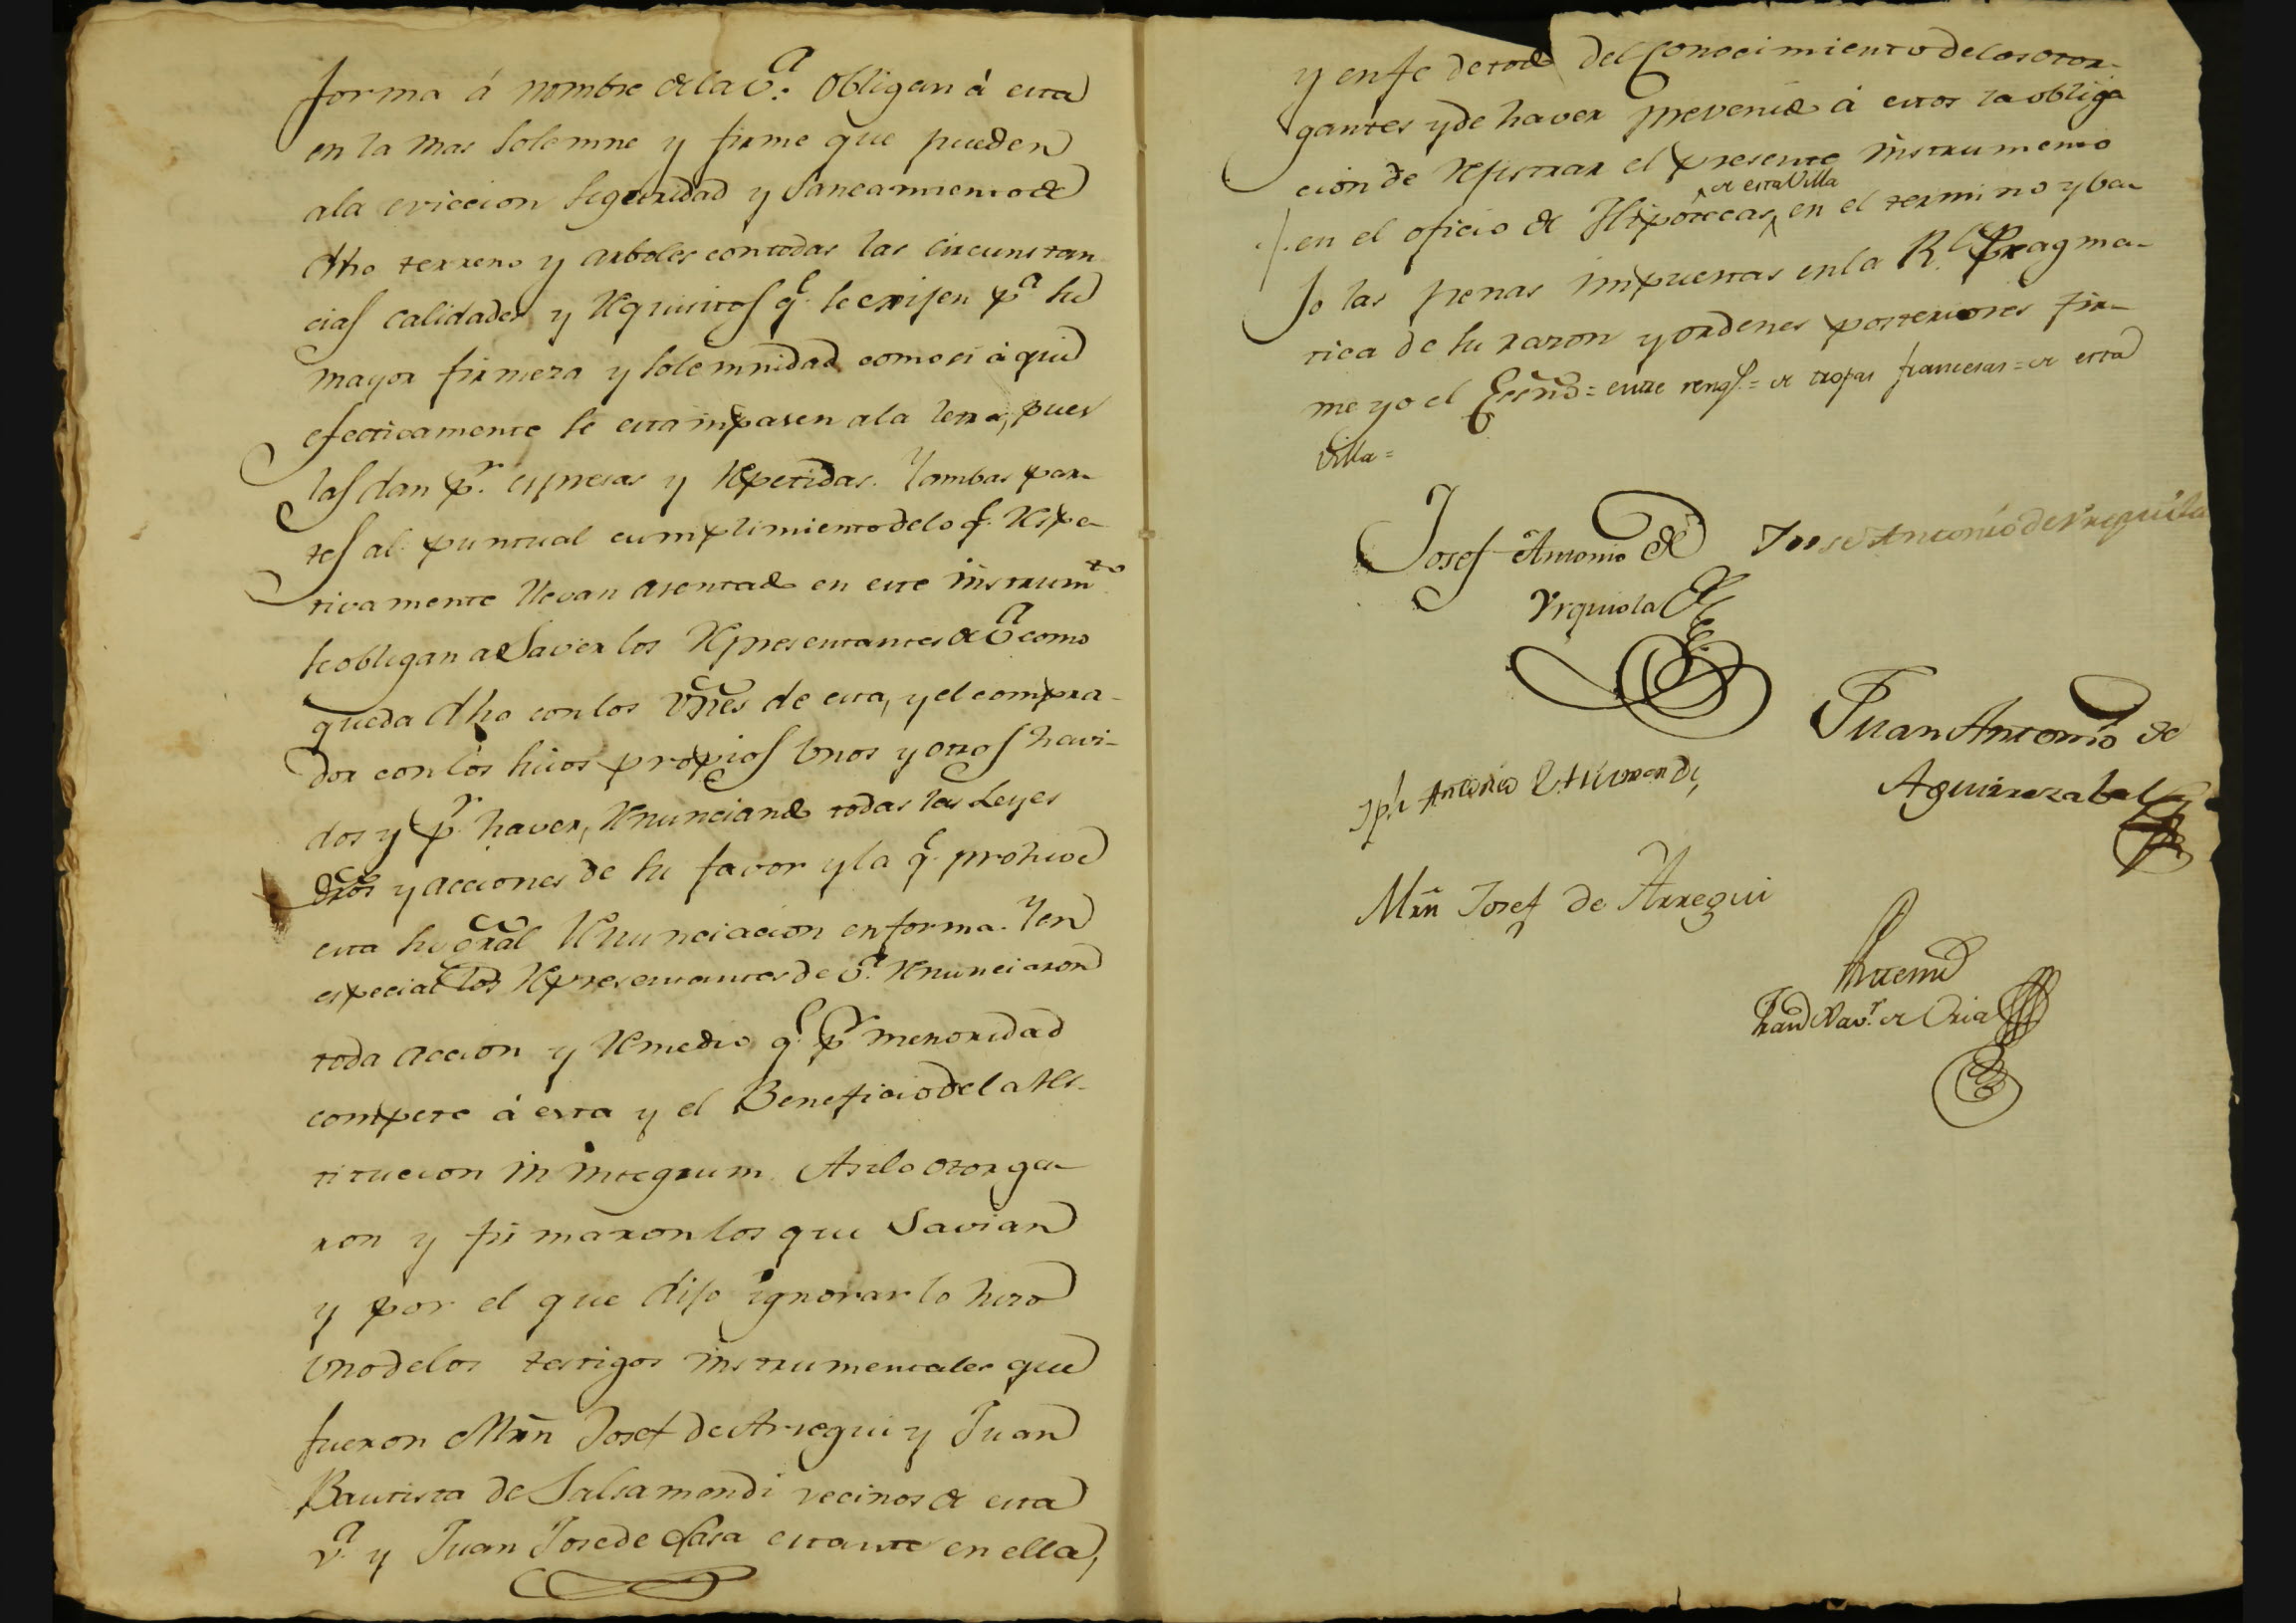 forma á nombre de la v.ª obligan á esta
en la mas solemne y firme que pueden
a la eviccion seguridad y saneamiento de
dho terreno y arboles con todas las circunstan
cias calidades y requisitos q.e se exijen p.a su
mayor firmeza y solemnidad como si á qui
efectivamente se estampasen a la letra, pues
las dan p.r expresas y repetidas. Y ambas par-
tes al puntual cumplimiento de lo q.e respe-
tivamente llevan asentado en este instrum.to
se obligan a saver los representantes de v.a como
queda dho con los vnes de esta, y el compra-
dor con los suios propios unos y otros havi-
dos y p.r haver, renunciando todas las Leyes
dros y acciones de su favor y la q.e prohive
esta su gral renunciacion en forma. Y en
especial los representantes de v.a renunciaron
toda accion y remedio q.e p.r menoridad
compete á esta y el Beneficio de la res-
titucion in integrum. Asi lo otorga-
ron y firmaron los que savian
y por el que dijo ignorar lo hizo
uno de los testigos instrumentales que
fueron Mrn Josef de Arregui y Juan
Bautista de Salsamendi vecinos de esta
v.a y Juan Jose de Lasa estante en ella,
y en fe de todo del conocimiento de los otor-
gantes y de haver prevenido á estos la obliga
cion de rejistrar el presente instrumento
de esta Villa
en el oficio de Hipotecas en el termino y ba-
jo las penas impuestas en la R.l Pragma-
tica de su razon y ordenes posteriores fir-
me yo el Essno = entre rengs. = de tropas francesas = de esta
Villa =
Josef Antonio de
Urquiola
Jose Antonio de
Juan Antonio de
Aguirrezabal
Jph Antonio
Mrn Josef de Arregui
Antemi
de Oria